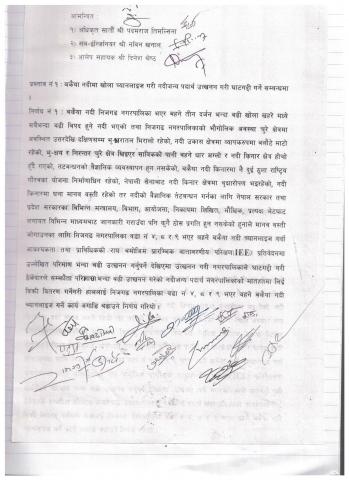 आमन्त्रित
१) अधिकृत सातौं श्री पदमराज तिमल्सिना
२) सव-इन्जिनियर श्री नविन खनाल
३) आलेप सहायक श्री दिनेश श्रेष्ठ
प्रस्ताव नं १: बकैया नदीमा खोला च्यानलाइज गरी नदीजन्य पदार्थ उत्खनन गरी घाटगद्दी गर्ने सम्बन्धमा
।
निर्णय नं १: बकैया नदी निजगढ नगरपालिका भएर बहने तीन दर्जन भन्दा बढी खोला खहरे मध्ये
सबैभन्दा बढी विपद हुने नदी भएको तथा निजगढ नगरपालिकाको भौगोलिक अवस्था चुरे क्षेत्रमा
अवस्थित उत्तरदेखि दक्षिणसम्म भू-धरातल भिरालो रहेको, नदी उकास क्षेत्रमा व्यापकरुपमा बलौटे माटो
रहेको, भू-क्षय र निरन्तर चुरे क्षेत्र बाट साविकको पानी बहने धार अग्लो र नदी किनार क्षेत्र होचो
हुँदै गएको, तटबन्धनको वैज्ञानिक व्यवस्थापन हुन नसकेको, बकैया नदी किनारमा नै दुई ठुला राष्ट्रिय
गौरवका योजना निर्माणाधिन रहेको, नेपाली सेनाबाट नदी किनार क्षेत्रमा वृक्षारोपण भइरहेको, नदी
किनारमा घना मानव वस्ती रहेको तर नदीको वैज्ञानिक तटबन्धन गर्नका लागि नेपाल सरकार तथा
प्रदेश सरकारका विभिन्न मन्त्रालय, विभाग, आयोजना, निकायमा लिखित, मौखिक, प्रत्यक्ष भेटघाट
लगायत विभिन्न माध्यमबाट जानकारी गराउँदा पनि कुनै ठोस प्रगति हुन नसकेको हुनाले मानव वस्ती
जोगाउनका लागि निजगढ नगरपालिका वडा नं ४, ८ र ९ भएर बहने बकैया नदी च्यानलाइज गर्न
आवश्यकता तथा प्राविधिकको राय बमोजिम प्रारम्भिक वातावरणीय परिक्षण(IEE) प्रतिवेदनमा
उल्लेखित परिमाण भन्दा बढी उत्खनन गर्नुपर्ने देखिएमा उत्खनन गरी नगरपालिकाले घाटगद्दी गरी
ठेकेदारले सम्झौता परिमाण भन्दा बढी उत्खनन गरेको नदीजन्य पदार्थ नगरपालिकाको मातहतमा लिई
बिक्री वितरण गर्नेगरी हाललाई निजगढ नगरपालिका वडा नं ४, ८ र ९ भएर बहने बकैया नदी
च्यानलाइज गर्ने कार्य अगाडि बढाउने निर्णय गरियो ।